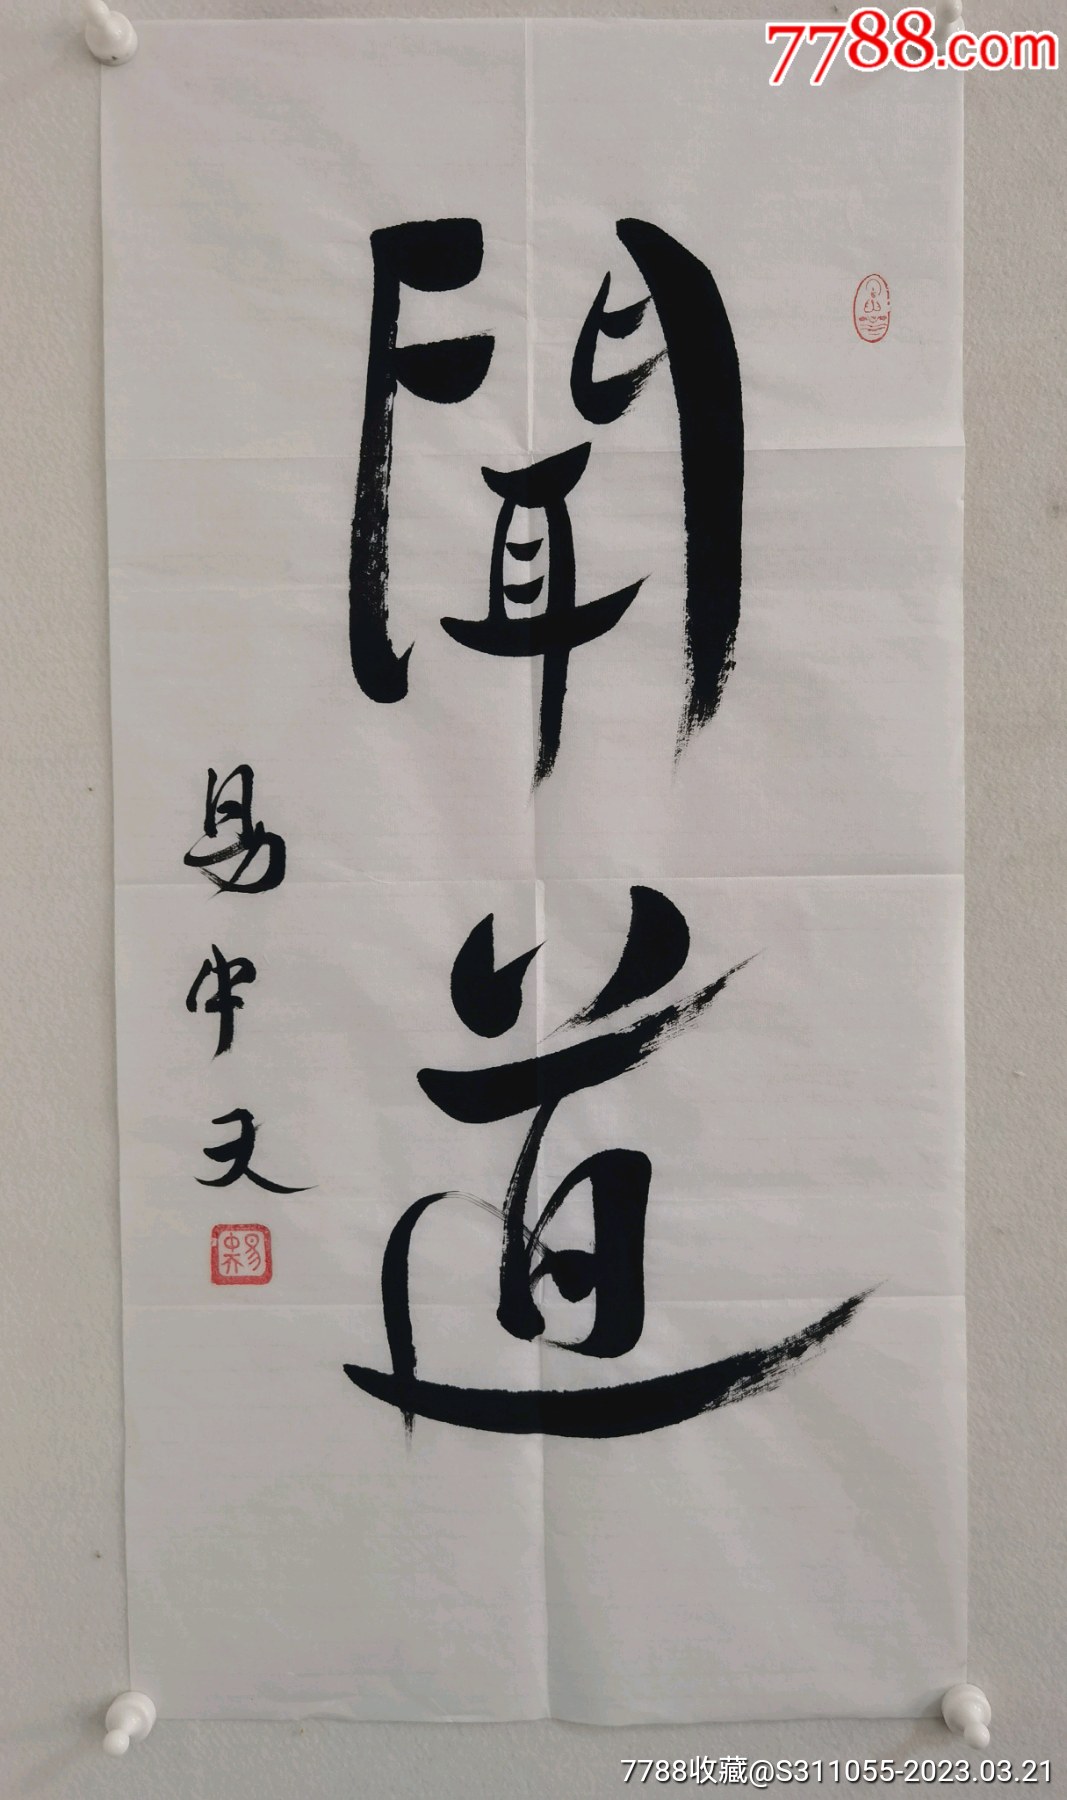 7788.com
聞道
易中天
7788收藏@S311055-2023.03.21